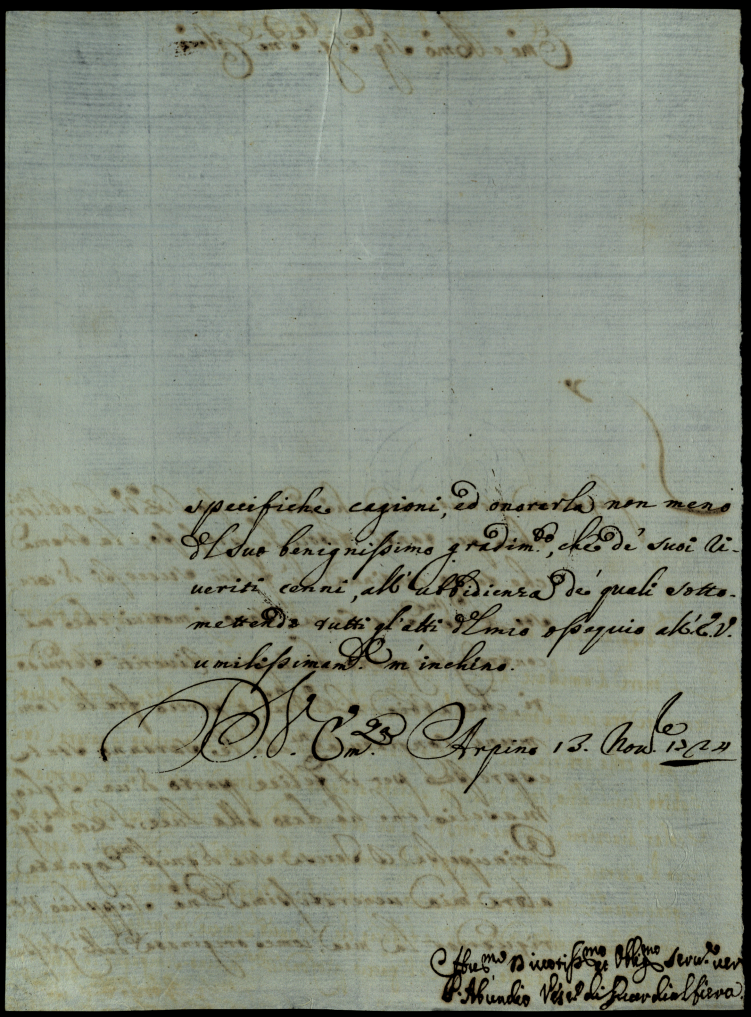 specifiche cagioni, ed onorerla non meno
del suo benignissimo gradim.to, che de' suoi ri-
veriti cenni, all' ubbidienza de' quali sotto-
mettendo tutti gl'atti del mio ossequio all' E.V.
umilissimam.te m'inchino.
D. V. Em.za Arpino 13. Nov.e 1724
Divotiss.mo et Obblig.mo Serv.re ver
F. Abundio Vesc.o di Guardialfiera